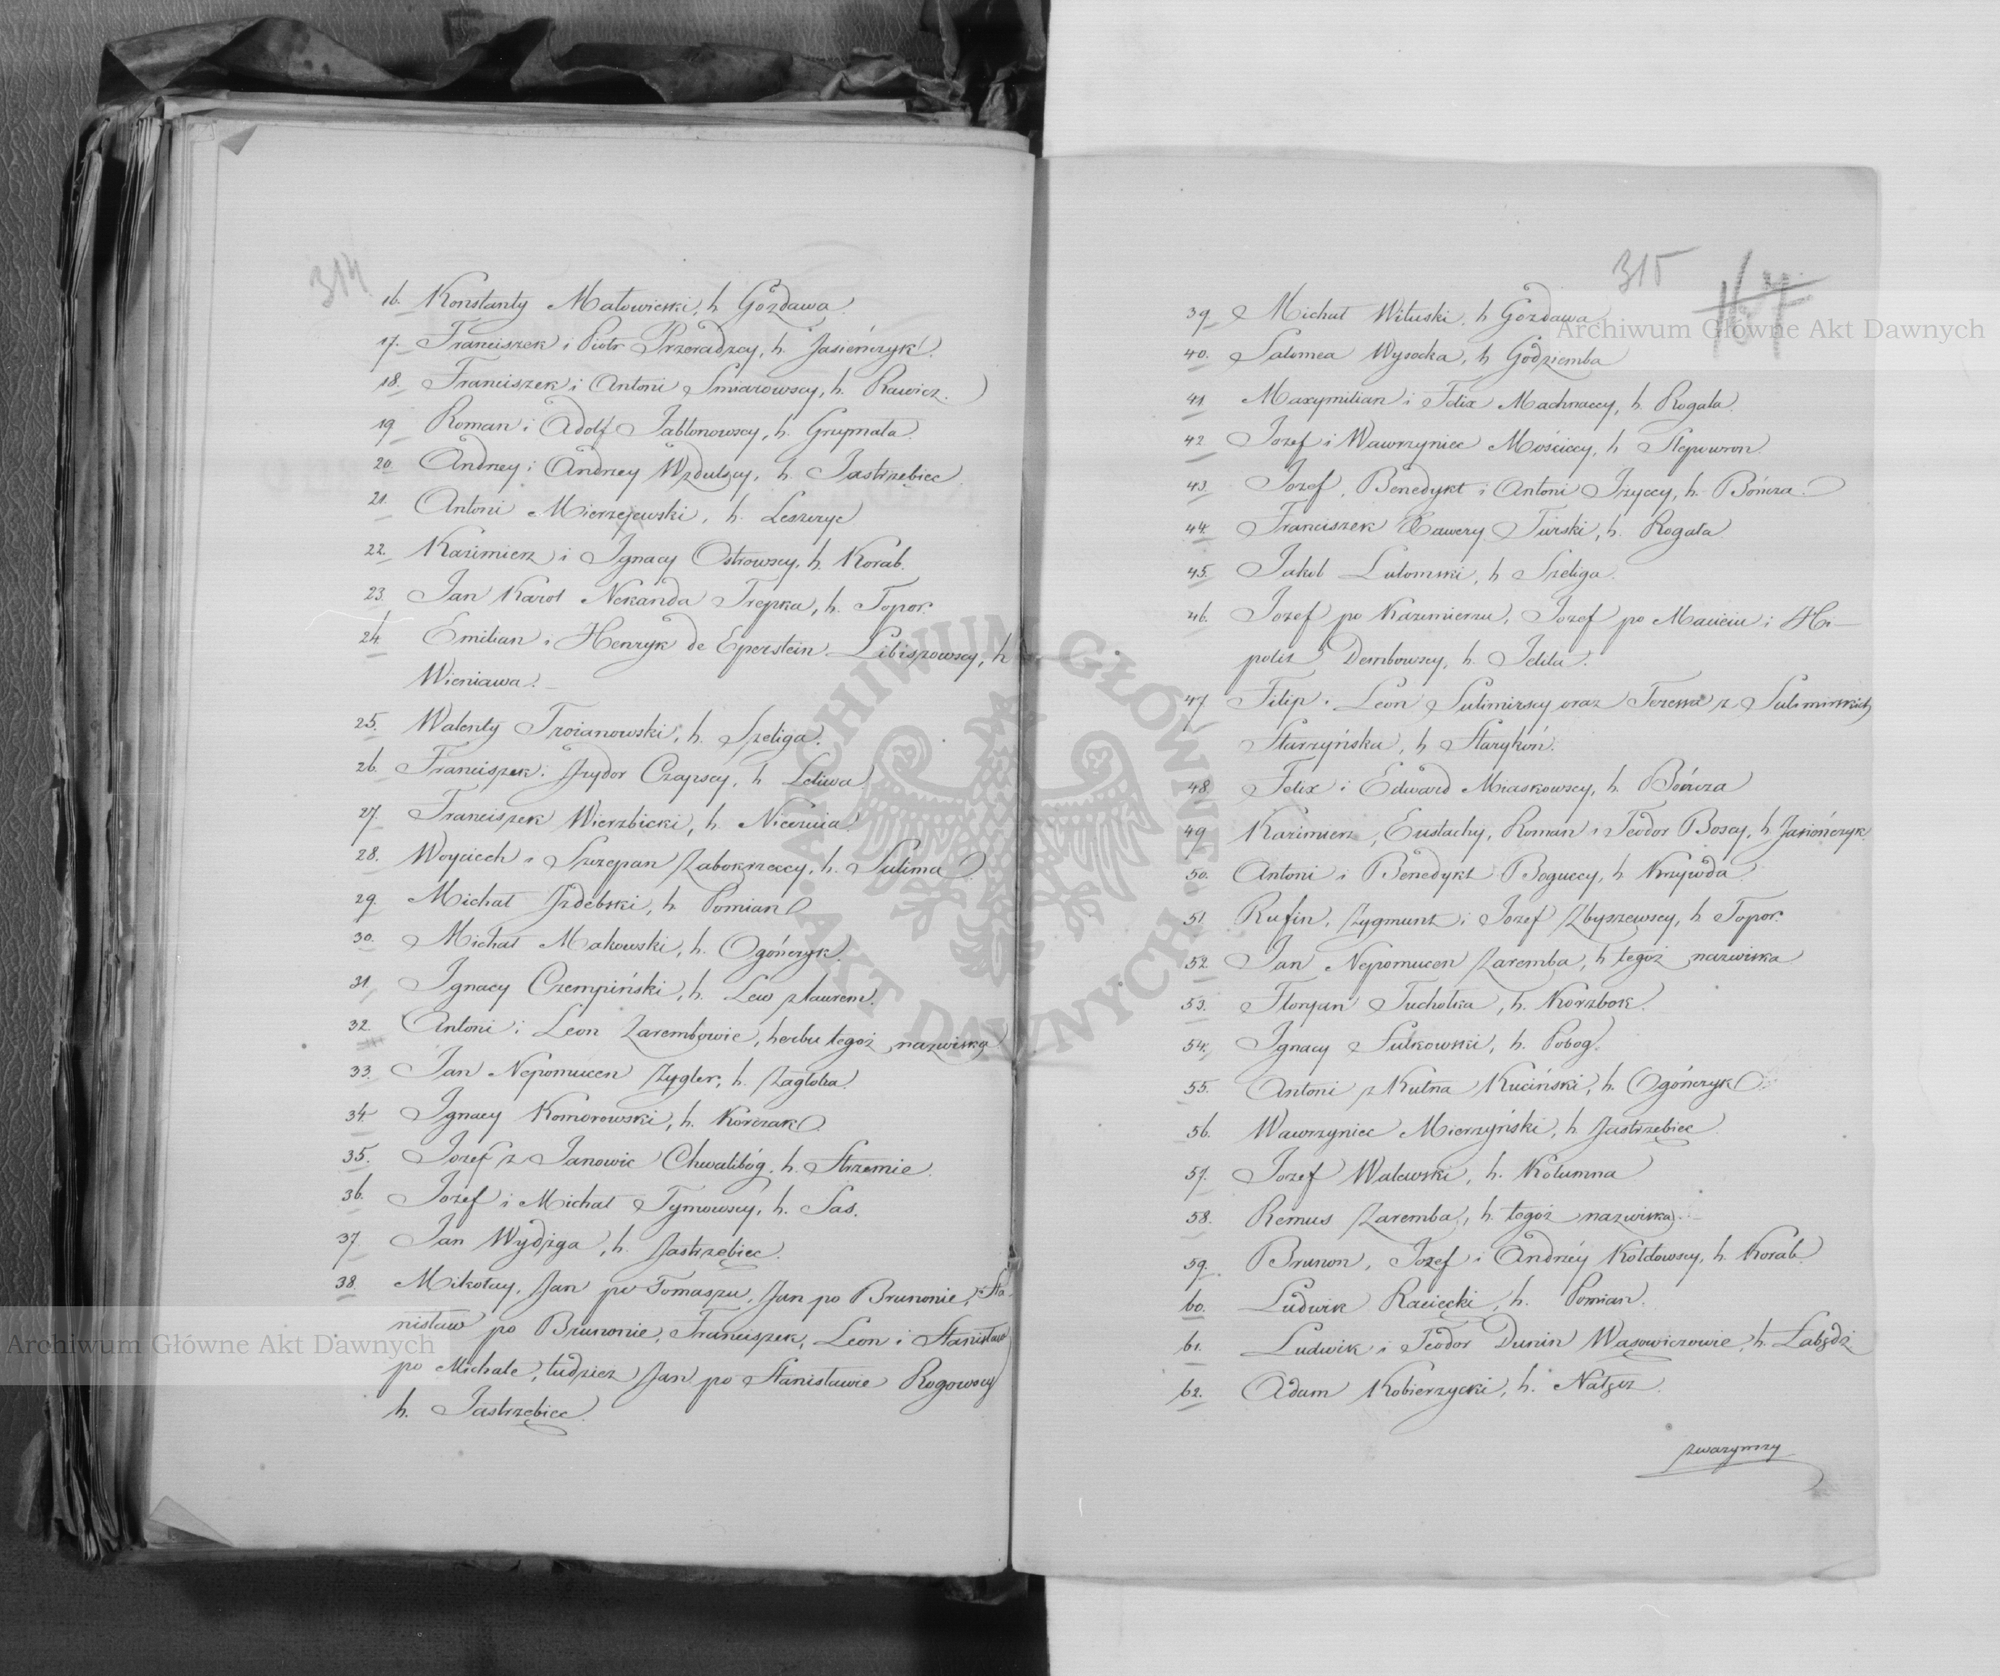 314
16. Konstanty Małowieski, h. Gozdawa.
17. Franciszek i Piotr Przeradzcy, h. Jasieńczyk.
18. Franciszek i Antoni Smiarowscy, h. Rawicz.
19 Roman i Adolf Jabłonowscy, h. Grzymała.
20 Andrzey i Andrzey Wzdulscy, h. Jastrzębiec.
21. Antoni Mierzejewski, h. Leszczyc
22. Kazimierz i Ignacy Ostrowscy, h. Korab.
23. Jan Karol Nekanda Trepka, h. Topor.
24 Emilian i Henryk de Eperstein Libiszowscy, h
Wieniawa.
25. Walenty Trojanowski, h. Szeliga.
26. Franciszek i Jzydor Czapscy, h Leliwa
27. Franciszek Wierzbicki, h. Nieczuia.
28. Woyciech i Szczepan Zabokrzeccy, h. Sulima.
29. Michał Jzdebski, h. Pomian
30. Michał Makowski, h. Ogończyk.
31. Ignacy Czempiński, h. Lew z laurem.
32. Antoni i Leon Zarembowie, herbu tegoż nazwiska
33. Jan Nepomucen Zygler, h. Zagłoba.
34. Ignacy Komorowski, h. Korczak.
35. Jozef z Janowic Chwalibóg, h. Strzemie.
36. Jozef i Michał Tymowscy, h. Sas.
37. Jan Wydżga, h. Jastrzębiec.
38. Mikołay, Jan po Tomaszu, Jan po Brunonie, Sta-
nisław po Brunonie, Franciszek, Leon i Stanisław
po Michale, tudzież Jan po Stanisławie Rogowscy
h. Jastrzębiec.
315
39. Michał Wituski, h Gozdawa
40. Salomea Wysocka, h Godziemba
41 Maxymilian i Felix Machnaccy, h. Rogala.
42 Jozef i Wawrzyniec Mościccy, h Slepowron.
43. Jozef, Benedykt i Antoni Jżyccy, h. Bończa.
44. Franciszek Xawery Turski, h. Rogala.
45. Jakób Lutomski, h Szeliga.
46. Jozef po Kazimierzu, Jozef po Macieiu i Hi-
polit Dembowscy, h. Jelita.
47 Filip i Leon Sulimirscy oraz Teressa z Sulimirskich
Starzyńska, h Starykoń.
48. Felix i Edward Miaskowscy, h. Bończa
49 Kazimierz, Eustachy, Roman i Teodor Boscy, h. Jasiończyk.
50. Antoni i Benedykt Boguccy, h. Krzywda
51 Rufin, Zygmunt i Jozef Zbyszewscy, h Topor.
52. Jan Nepomucen Zaremba, h tegoż nazwiska
53. Floryan Tuchołka, h. Korzbok.
54. Ignacy Sułkowski, h. Pobog.
55. Antoni z Kutna Kuciński, h. Ogończyk
56. Wawrzyniec Mierzyński, h Jastrzębiec
57. Jozef Walewski, h. Kolumna
58. Remus Zaremba, h. tegoż nazwiska.
59. Brunon, Jozef i Andrzéy Kołdowscy, h. Korab
60. Ludwik Raciecki, h. Pomian.
61. Ludwik i Teodor Dunin Wąsowiczowie, h. Łabędź
62. Adam Kobierzycki, h. Nałęcz.
zważywszy
Archiwum Główne Akt Dawnych
Archiwum Główne Akt Dawnych
ARCHIWUM GŁÓWNE AKT DAWNYCH